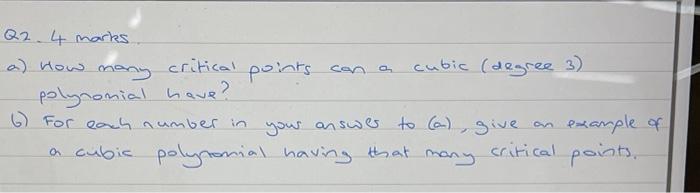 Q2. 4 marks.
a) How many critical points can a cubic (degree 3)
polynomial have?
b) For each number in your answer to (a), give an example of
a cubic polynomial having that many critical points.